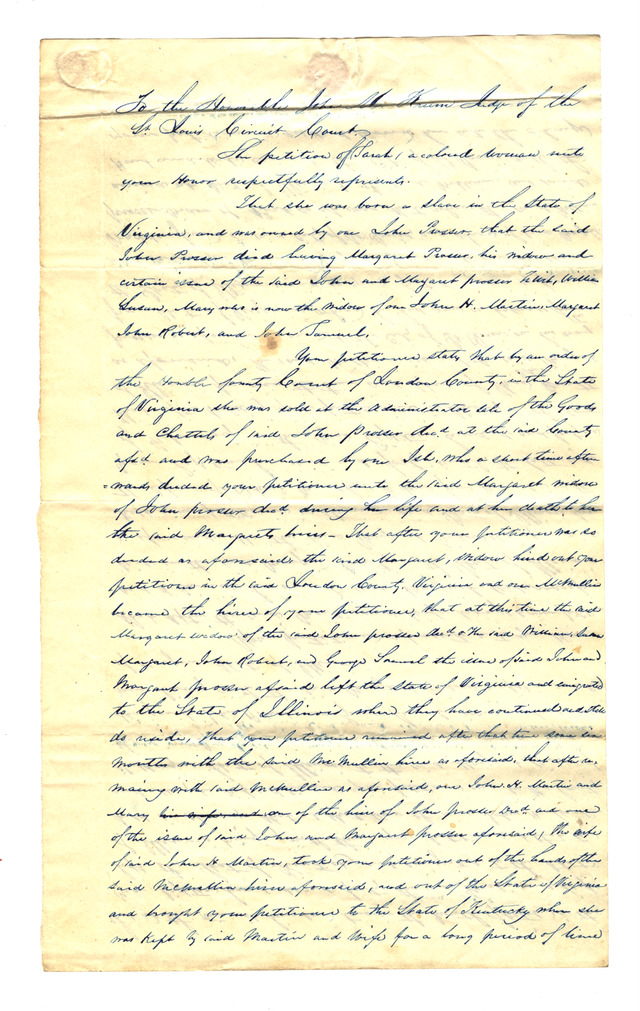 To the Honorable John M Krum Judge of the
St. Louis Circuit Court.
The petition of Sarah, a colored woman unto
your Honor respectfully represents.
That she was born a slave in the State of
Virginia, and was owned by one John Prosser, that the said
John Prosser died leaving Margaret Prosser, his widow and
certain issue of the said John and Margaret prosser to wit, William
Susan, Mary who is now the widow of one John H. Martin, Margaret
John Robert, and John Samuel.
Your petitioner states, that by an order of
the Honble County Court of Loudon County, in the State
of Virginia she was sold at the Administrator sale of the Goods
and Chattels of said John Prosser decd at the said County
afsd and was purchased by one Ish, who a short time after
=wards, deeded your petitioner unto the said Margaret widow
of John prosser decd during her life and at her death to her
the said Margarets heirs – That after your petitioner was so
deeded as aforesaid, the said Margaret, Widow hired out your
petitioner in the said Loudon County, Virginia and one McMullin
became the hirer of your petitioner, that at this time the said
Margaret widow of the said John prosser decd & the said William, Susan
Margaret, John Robert, and George Samuel the issue of said John and
Margaret prosser afsaid left the state of Virginia and emigrated
to the State of Illinois where they have continued and still
do reside, That your petitioner remained after that time some six
months with the said McMullin hirer as aforesaid, that after re,
maining with said McMullin as aforesaid, one John H. Martin and
Mary one of the heirs of John prosser Decd. and one
of the issue of said John and Margaret prosser aforesaid, the wife
of said John H Martin, took your petitioner out of the hands of the
said McMullin hirer aforesaid, and out of the State of Virginia
and brought your petitioner to the State of Kentucky where she
was kept by said Martin and Wife for a long period of time